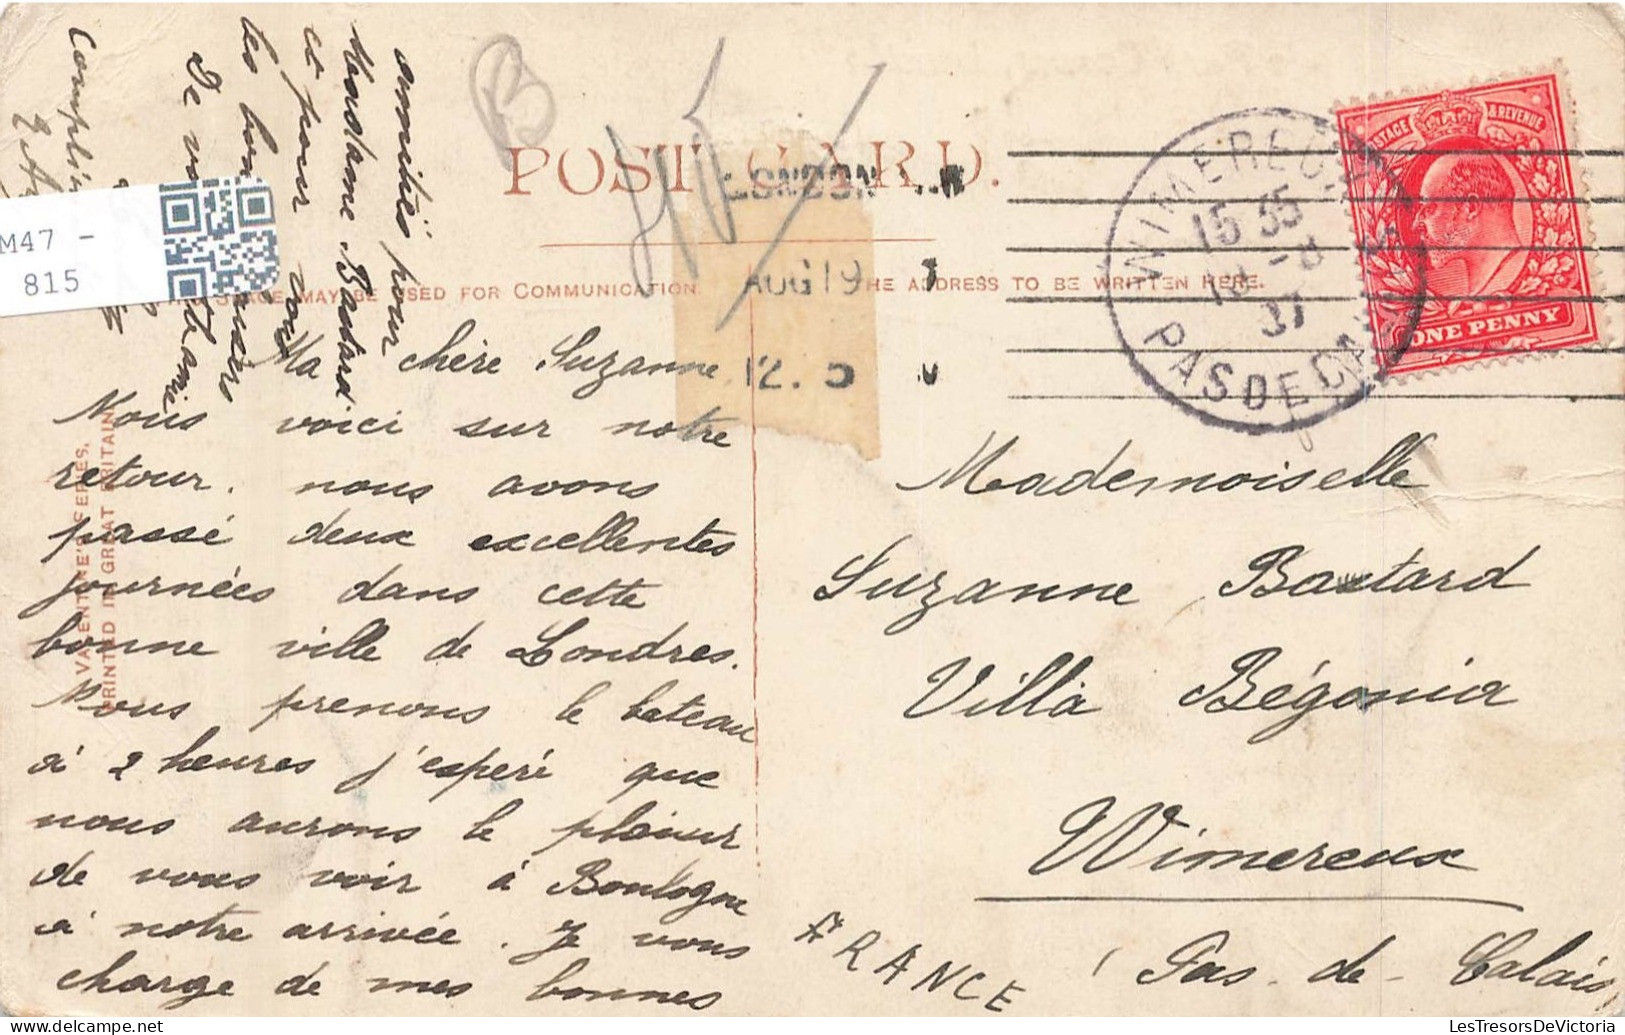 POST CARD.
THIS SPACE MAY BE USED FOR COMMUNICATION.
THE ADDRESS TO BE WRITTEN HERE.
LONDON . W
AUG 19
12.
WIMEREUX
15 35
PAS DE CALAIS
POSTAGE & REVENUE
ONE PENNY
B
M47 -
815
VALENTINE'S SERIES.
PRINTED IN GREAT BRITAIN
Ma chère Suzanne
Nous voici sur notre
retour. nous avons
passé deux excellentes
journées dans cette
bonne ville de Londres.
Nous prenons le bateau
à 2 heures j'esperé que
nous aurons le plaisir
de vous voir à Boulogne
à notre arrivée. Je vous
charge de mes bonnes
amitiés pour
Madame Bastard
et pour vous
les bons baisers
De votre ami
Mademoiselle
Suzanne Bastard
Villa Bégonia
Wimereux
(Pas-de-Calais)
FRANCE
LesTresorsDeVictoria.com